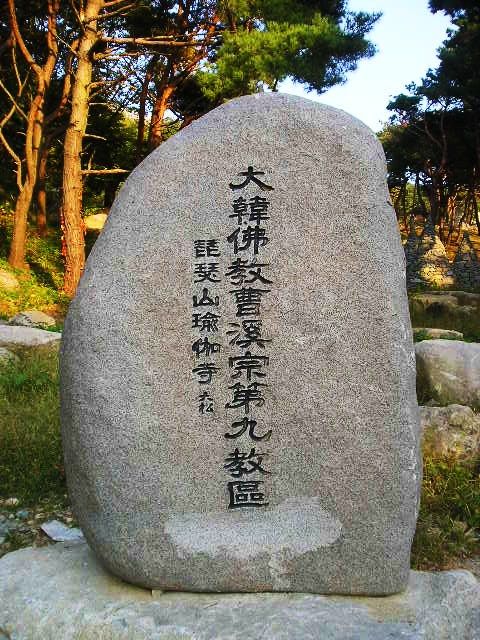 大韓佛教曹溪宗第九教區
琵瑟山瑜伽寺 大松